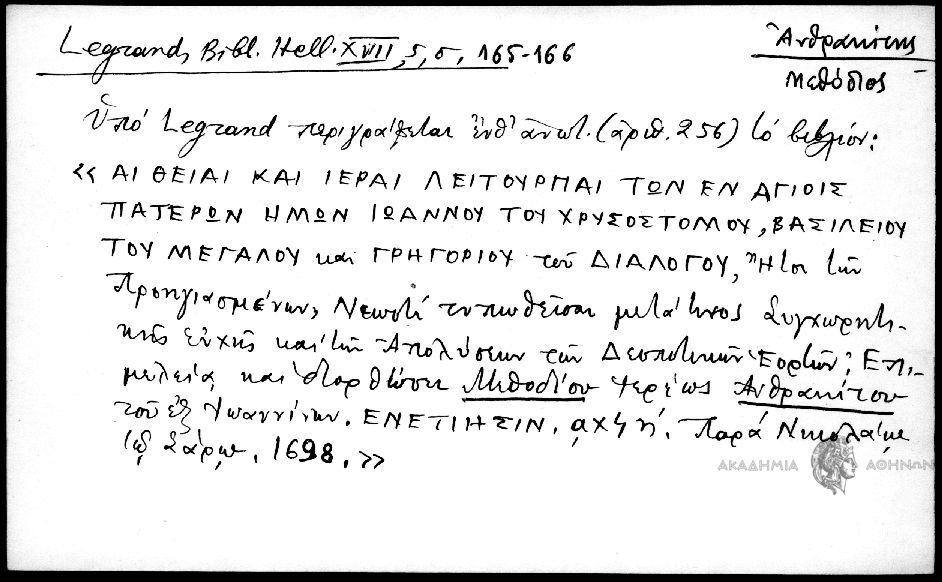 Legrand, Bibl. Hell. XVII, 5, σ, 165-166
Ἀνθρακίτης
Μεθόδιος
Ὑπό Legrand περιγράφεται ἐνθ' ἀνωτ. (ἀριθ. 256) τό βιβλίον:
«ΑΙ ΘΕΙΑΙ ΚΑΙ ΙΕΡΑΙ ΛΕΙΤΟΥΡΓΙΑΙ ΤΩΝ ΕΝ ΑΓΙΟΙΣ
ΠΑΤΕΡΩΝ ΗΜΩΝ ΙΩΑΝΝΟΥ ΤΟΥ ΧΡΥΣΟΣΤΟΜΟΥ, ΒΑΣΙΛΕΙΟΥ
ΤΟΥ ΜΕΓΑΛΟΥ και ΓΡΗΓΟΡΙΟΥ τοῦ ΔΙΑΛΟΓΟΥ, Ἤτοι τῶν
Προηγιασμένων, Νεωστί τυπωθεῖσαι μετά τινος Συγχωρητι-
κῆς εὐχῆς και τῶν Ἀπολύσεων τῶν Δεσποτικῶν Ἑορτῶν; Ἐπι-
μελείᾳ και διορθώσει Μεθοδίου Ἱερέως Ἀνθρακίτου
τοῦ ἐξ Ἰωαννίνων. ΕΝΕΤΙΗΣΙΝ. ͵αχϟή. Παρά Νικολάῳ
τῷ Σάρῳ. 1698.»
ΑΚΑΔΗΜΙΑ ΑΘΗΝΩΝ